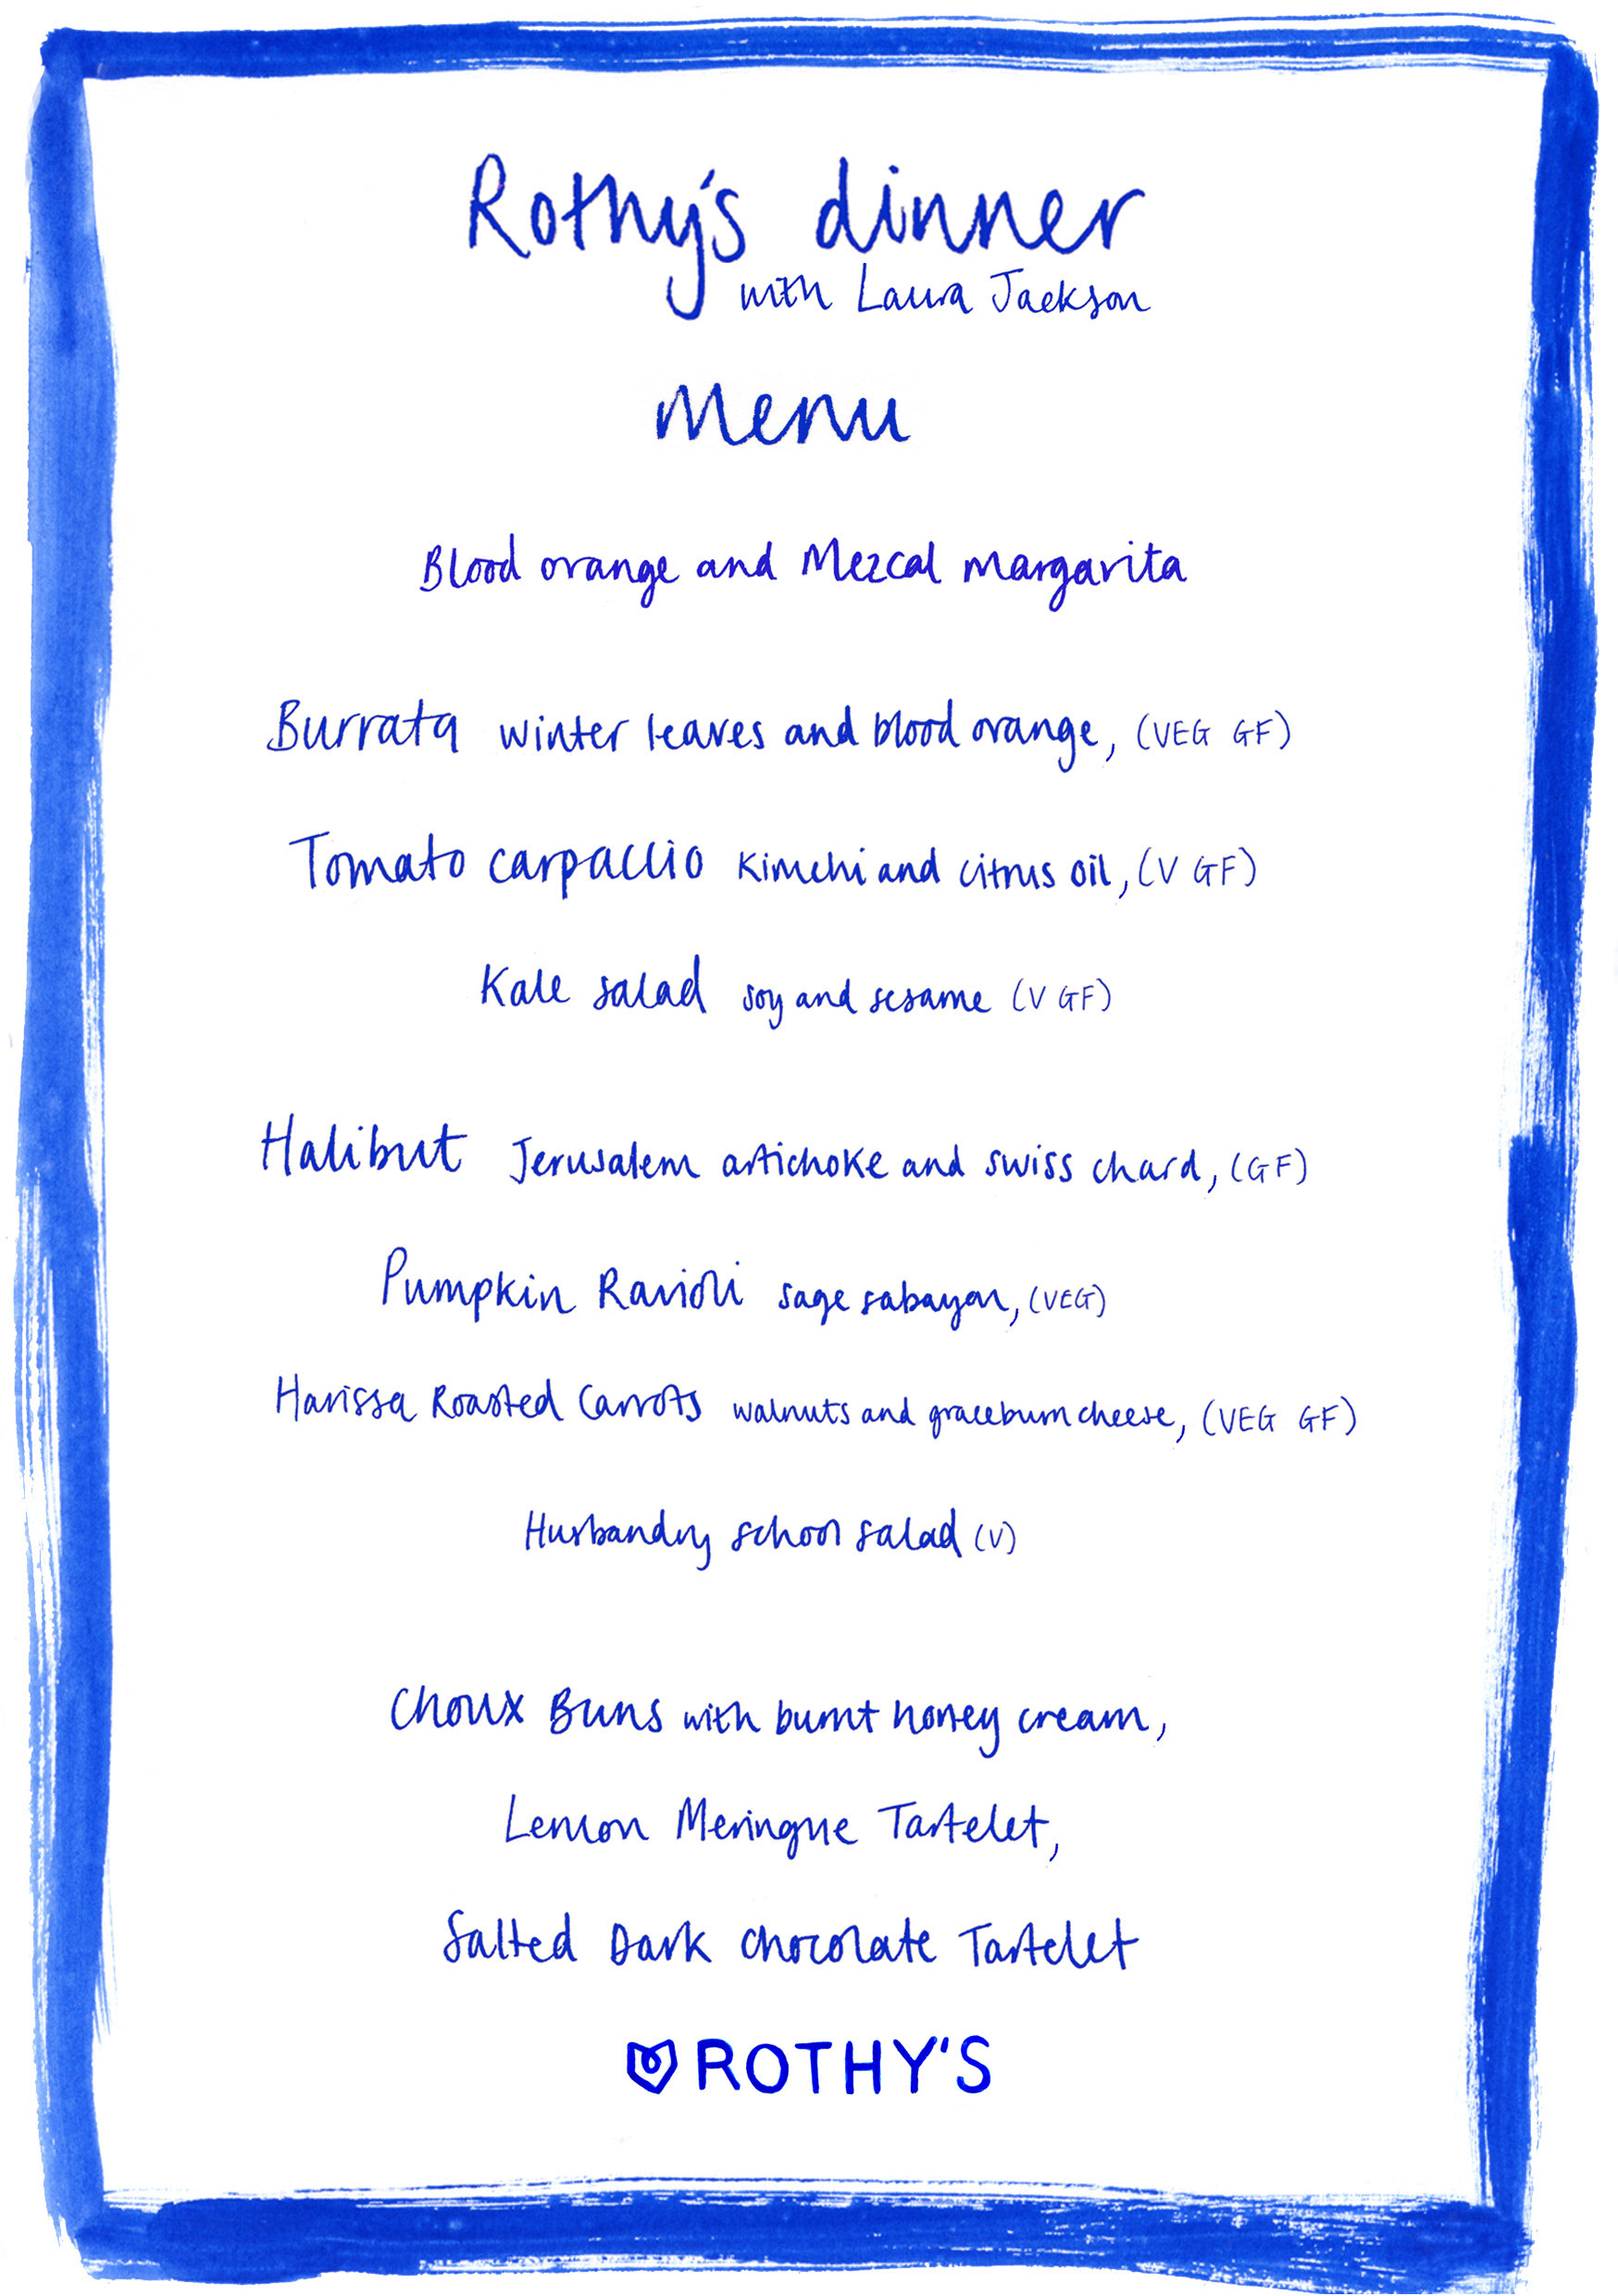 Rothy's dinner
with Laura Jackson
Menu
Blood orange and Mezcal margarita
Burrata winter leaves and blood orange, (VEG GF)
Tomato carpaccio Kimchi and citrus oil, (V GF)
Kale salad soy and sesame (V GF)
Halibut Jerusalem artichoke and swiss chard, (GF)
Pumpkin Ravioli sage sabayon, (VEG)
Harissa Roasted Carrots walnuts and graceburn cheese, (VEG GF)
Husbandry school salad (V)
Choux Buns with burnt honey cream,
Lemon Meringue Tartelet,
Salted Dark chocolate Tartelet
ROTHY'S